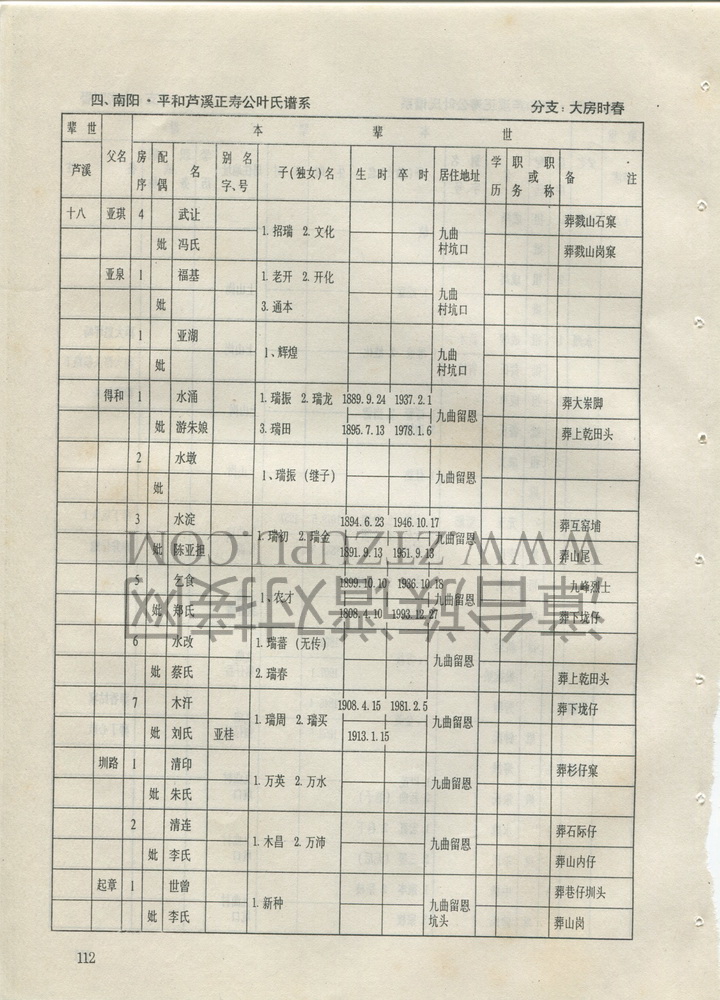 四、南阳·平和芦溪正寿公叶氏谱系 分支：大房时春
辈世 本辈世
芦溪 父名 房序 配偶 名 别名字、号 子(独女)名 生时 卒时 居住地址 学历 职务或职称 备注
十八 亚琪 4 武让 1.招瑞 2.文化 九曲村坑口 葬戮山石窠
妣 冯氏 葬戮山岗窠
亚泉 1 福基 1.老开 2.开化 九曲村坑口
妣 3.通本
1 亚湖 1、辉煌 九曲村坑口
妣
得和 1 水涌 1.瑞振 2.瑞龙 1889.9.24 1937.2.1 九曲留恩 葬大崇脚
妣 游朱娘 3.瑞田 1895.7.13 1978.1.6 葬上乾田头
2 水墩 1、瑞振(继子) 九曲留恩
妣
3 水淀 1.瑞初 2.瑞金 1894.6.23 1946.10.17 九曲留恩 葬互窑埔
妣 陈亚担 1891.9.13 1951.9.13 葬山尾
5 乞食 1.农才 1899.10.10 1936.10.18 九曲留恩 九峰烈士
妣 郑氏 1808.4.10 1993.12.27 葬下垅仔
6 水改 1.瑞蕃(无传) 九曲留恩
妣 蔡氏 2.瑞春 葬上乾田头
7 木汗 1.瑞周 2.瑞买 1908.4.15 1981.2.5 九曲留恩 葬下垅仔
妣 刘氏 亚桂 1913.1.15
圳路 1 清印 1.万英 2.万水 九曲留恩 葬杉仔窠
妣 朱氏
2 清连 1.木昌 2.万沛 九曲留恩 葬石际仔
妣 李氏 葬山内仔
起章 1 世曾 1.新种 九曲留恩坑头 葬巷仔圳头
妣 李氏 葬山岗
112
WWW.ZTZUPU.COM
漳台族谱对接网